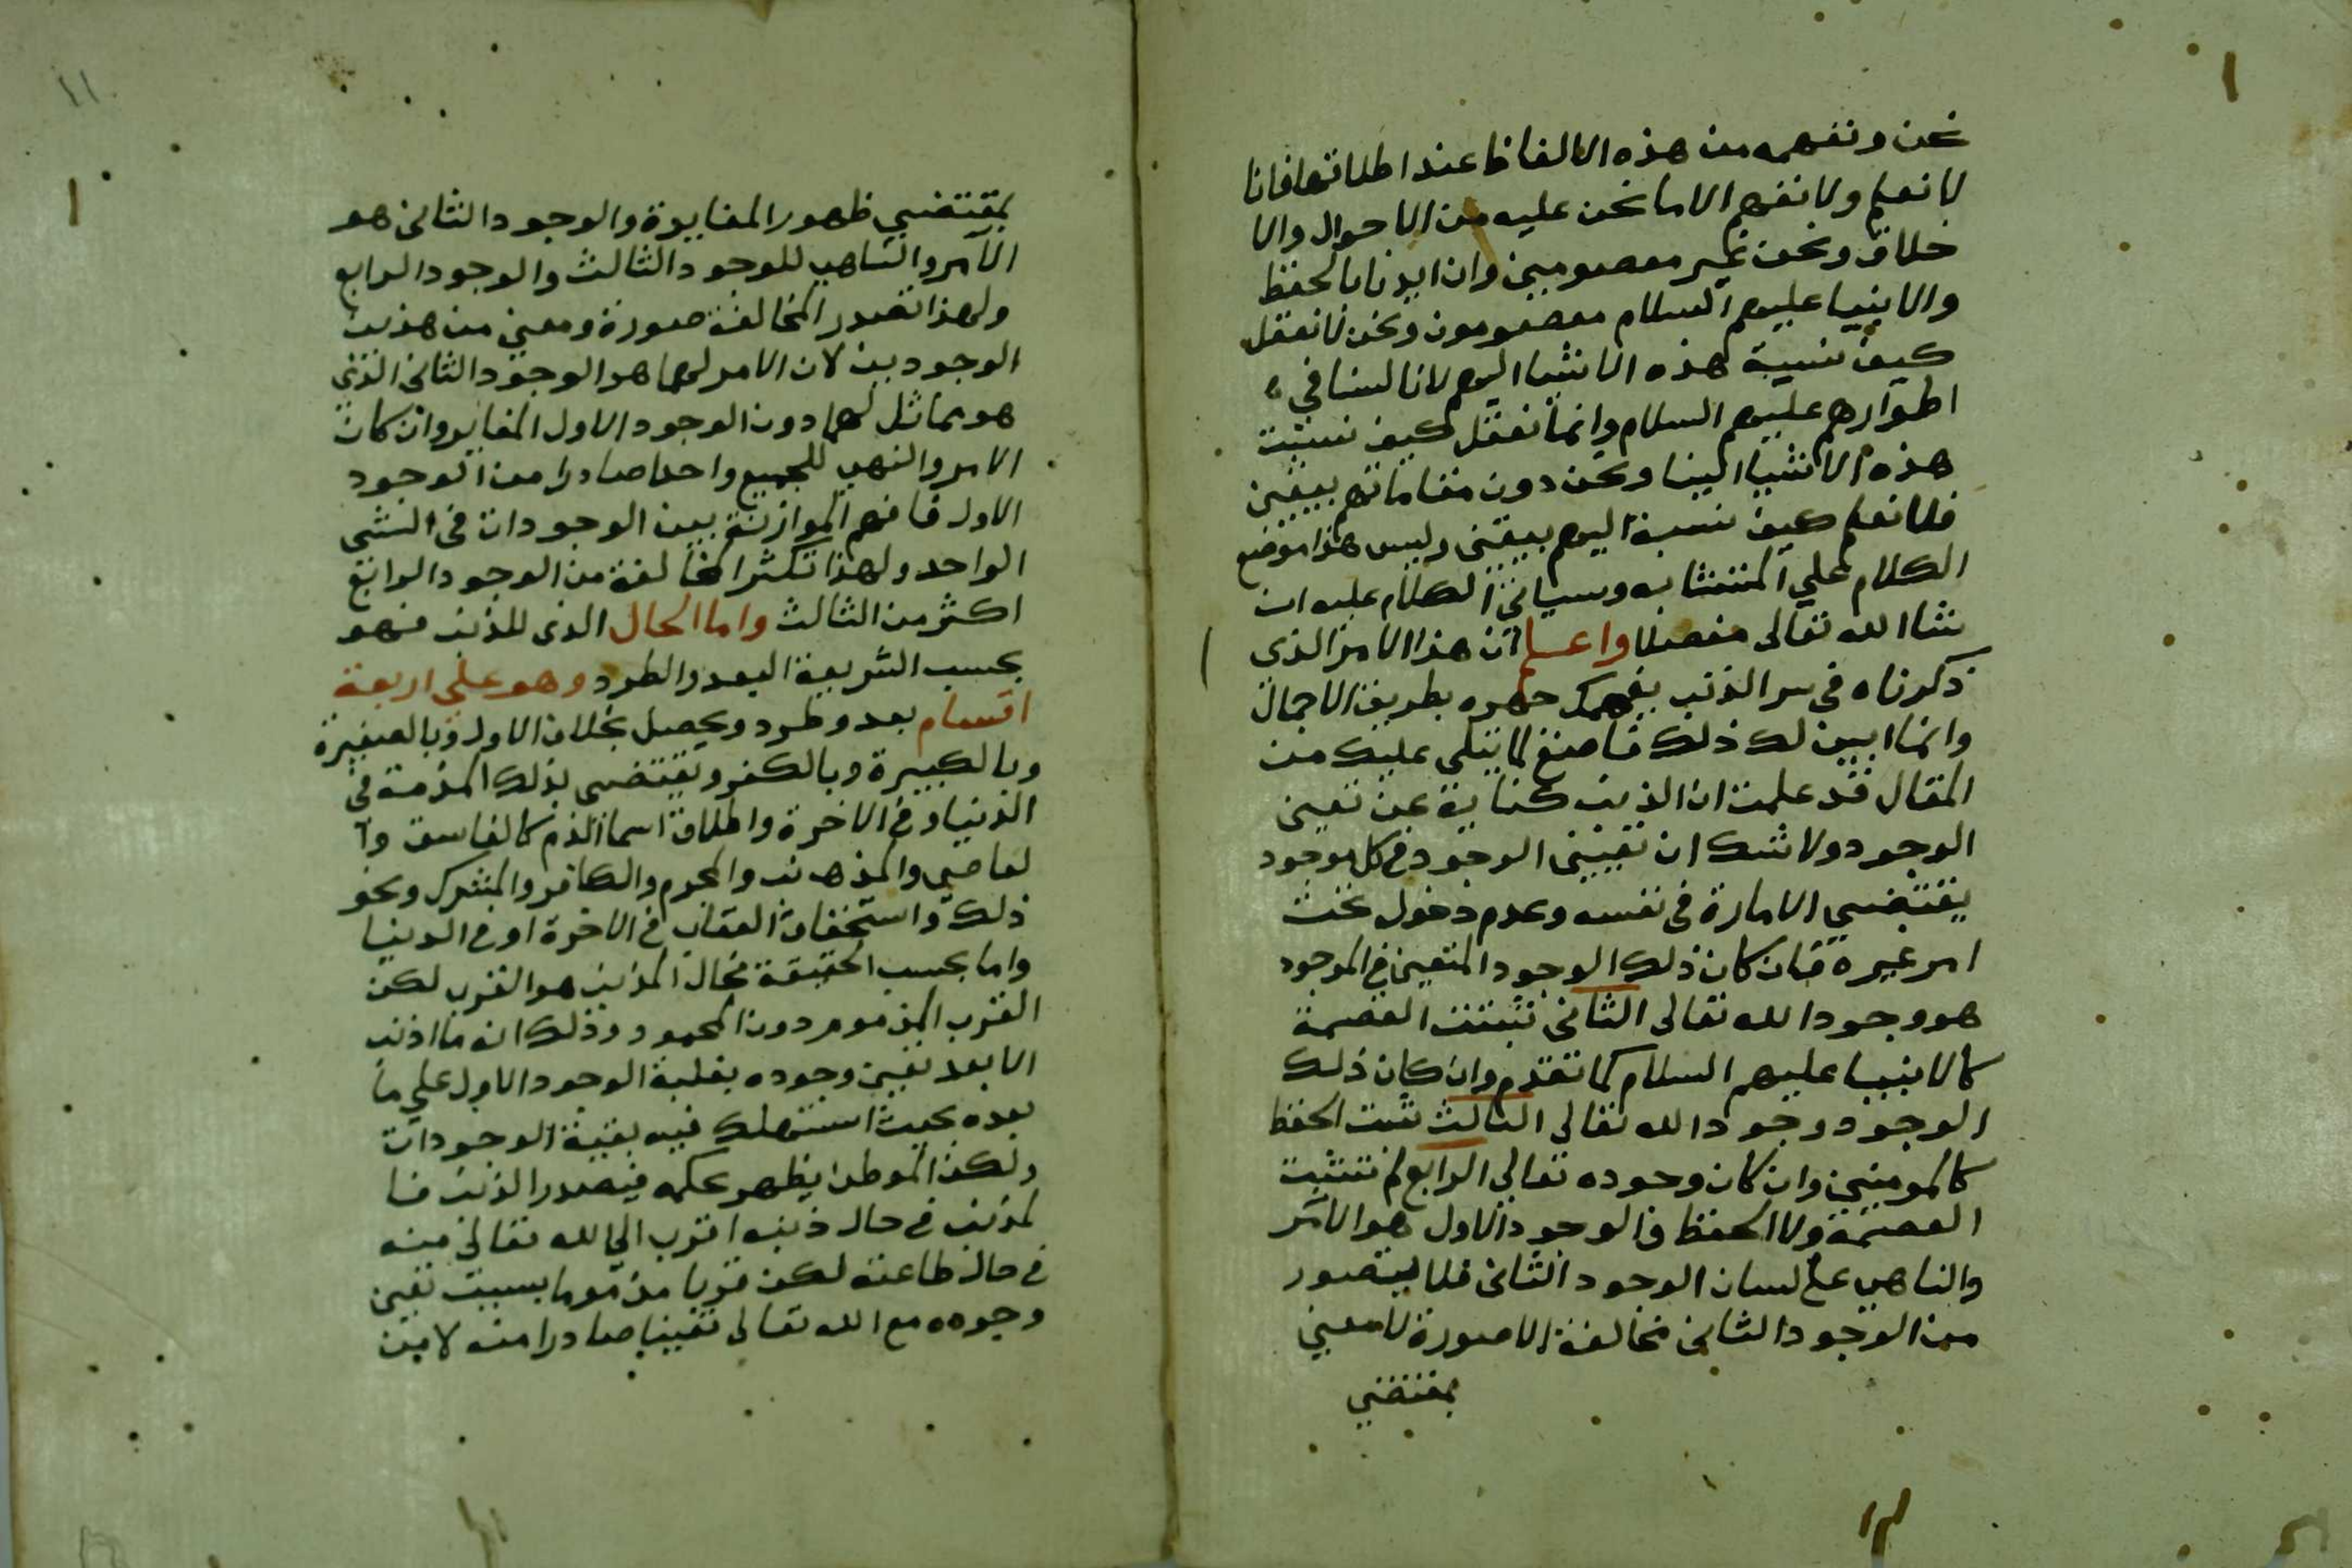 نحن ونفهمه من هذه الالفاظ عند اطلاقها فانا
لا نعلم ولا نفهم الا ما نحن عليه من الاحوال والا
خلاق ونحن غير معصومين وان ايدنا بالحفظ
والانبيا عليهم السلام معصومون ونحن لا نعقل
كيف نسبة هذه الاشيا اليهم لانا لسنا في
اطوارهم عليهم السلام وانما نعقل كيف نسبت
هذه الاشيا الينا ونحن دون مقاماتهم بيقين
فلا نعلم كيف نسبة اليهم بيقين وليس هذا موضع
الكلام على المتشابه وسياتي الكلام عليه ان
شا الله تعالى مفصلا واعلم ان هذا الامر الذي
ذكرناه في سر الذنب يفهمك جهره بطريق الاجمال
وانما ابين لك ذلك فاصغ لما يتلى عليك من
المقال قد علمت ان الذنب كناية عن تعين
الوجود ولا شك ان تعين الوجود في كل موجود
يقتضي الامارة في نفسه وعدم دخول تحت
امر غيره فان كان ذلك الوجود المتعين في الموجود
هو وجود الله تعالى الثاني ثبتت العصمة
كالانبيا عليهم السلام كما تقدم وان كان ذلك
الوجود وجود الله تعالى الثالث ثبت الحفظ
كالمومنين وان كان وجوده تعالى الرابع لم تثبت
العصمة ولا الحفظ فالوجود الاول هو الآمر
والناهي على لسان الوجود الثاني فلا يتصور
من الوجود الثاني مخالفة الا صورة لا معنى
بمقتضى
١١
بمقتضي ظهور المغايرة والوجود الثاني هو
الآمر والناهي للوجود الثالث والوجود الرابع
ولهذا تصدر المخالفة صورة ومعنى من هذين
الوجودين لان الامر لهما هو الوجود الثاني الذي
هو مماثل لهما دون الوجود الاول المغاير وان كان
الامر والنهي للجميع واحدا صادرا من الوجود
الاول فافهم الموازنة بين الوجودات في الشي
الواحد ولهذا تكثر المخالفة من الوجود الرابع
اكثر من الثالث واما الحال الذي للمذنب فهو
بحسب الشريعة البعد والطرد وهو على اربعة
اقسام بعد وطرد ويحصل بخلاف الاول وبالصغيرة
وبالكبيرة وبالكفر ويقتضي بذلك المذمة في
الدنيا وفي الاخرة واطلاق اسما الذم كالفاسق وا
لعاصي والمذهب والمجرم والكافر والمشرك ونحو
ذلك واستحقاق العقاب في الاخرة او في الدنيا
واما بحسب الحقيقة فحال المذنب هو القرب لكن
القرب المذموم دون المحمود وذلك انه ما اذنب
الا بعد تعين وجوده بغلبة الوجود الاول على ما
بعده بحيث استهلك فيه بقية الوجودات
ولكن الموطن يظهر حكمه فيصدر الذنب فا
لمذنب في حال ذنبه اقرب الى الله تعالى منه
في حال طاعته لكن قربا مذموما بسبب تعين
وجوده مع الله تعالى تعينا صادرا منه لا من